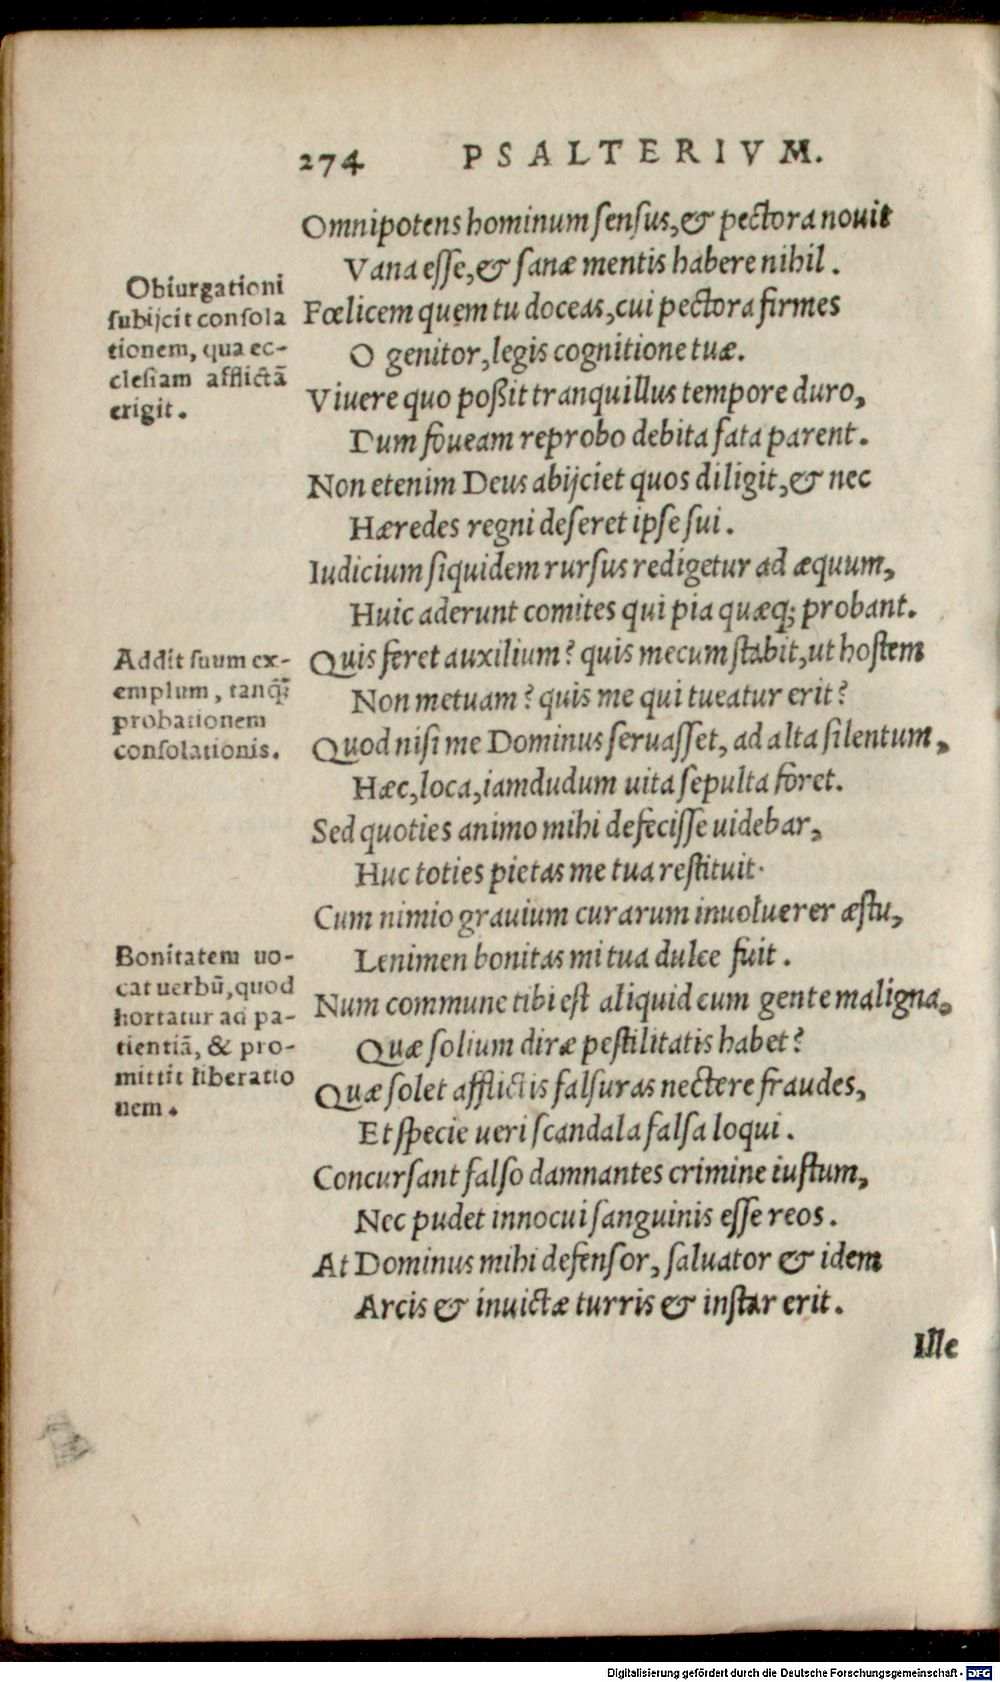 274 PSALTERIVM.
Omnipotens hominum sensus, & pectora nouit
Vana esse, & sanæ mentis habere nihil.
Obiurgationi
subijcit consola
tionem, qua ec-
clesiam afflictā
erigit.
Fœlicem quem tu doceas, cui pectora firmes
O genitor, legis cognitione tuæ.
Viuere quo poßit tranquillus tempore duro,
Dum foueam reprobo debita fata parent.
Non etenim Deus abijciet quos diligit, & nec
Hæredes regni deseret ipse sui.
Iudicium siquidem rursus redigetur ad æquum,
Huic aderunt comites qui pia quæq; probant.
Addit suum ex-
emplum, tanq̄;
probationem
consolationis.
Quis feret auxilium? quis mecum stabit, ut hostem
Non metuam? quis me qui tueatur erit?
Quod nisi me Dominus seruasset, ad alta silentum,
Hæc, loca, iamdudum uita sepulta foret.
Sed quoties animo mihi defecisse uidebar,
Huc toties pietas me tua restituit.
Cum nimio grauium curarum inuoluerer æstu,
Lenimen bonitas mi tua dulce fuit.
Bonitatem uo-
cat uerbū, quod
hortatur ad pa-
tientiā, & pro-
mittit liberatio
nem.
Num commune tibi est aliquid cum gente maligna,
Quæ solium diræ pestilitatis habet?
Quæ solet afflictis falsuras nectere fraudes,
Et specie ueri scandala falsa loqui.
Concursant falso damnantes crimine iustum,
Nec pudet innocui sanguinis esse reos.
At Dominus mihi defensor, saluator & idem
Arcis & inuictæ turris & instar erit.
Ille
Digitalisierung gefördert durch die Deutsche Forschungsgemeinschaft - DFG